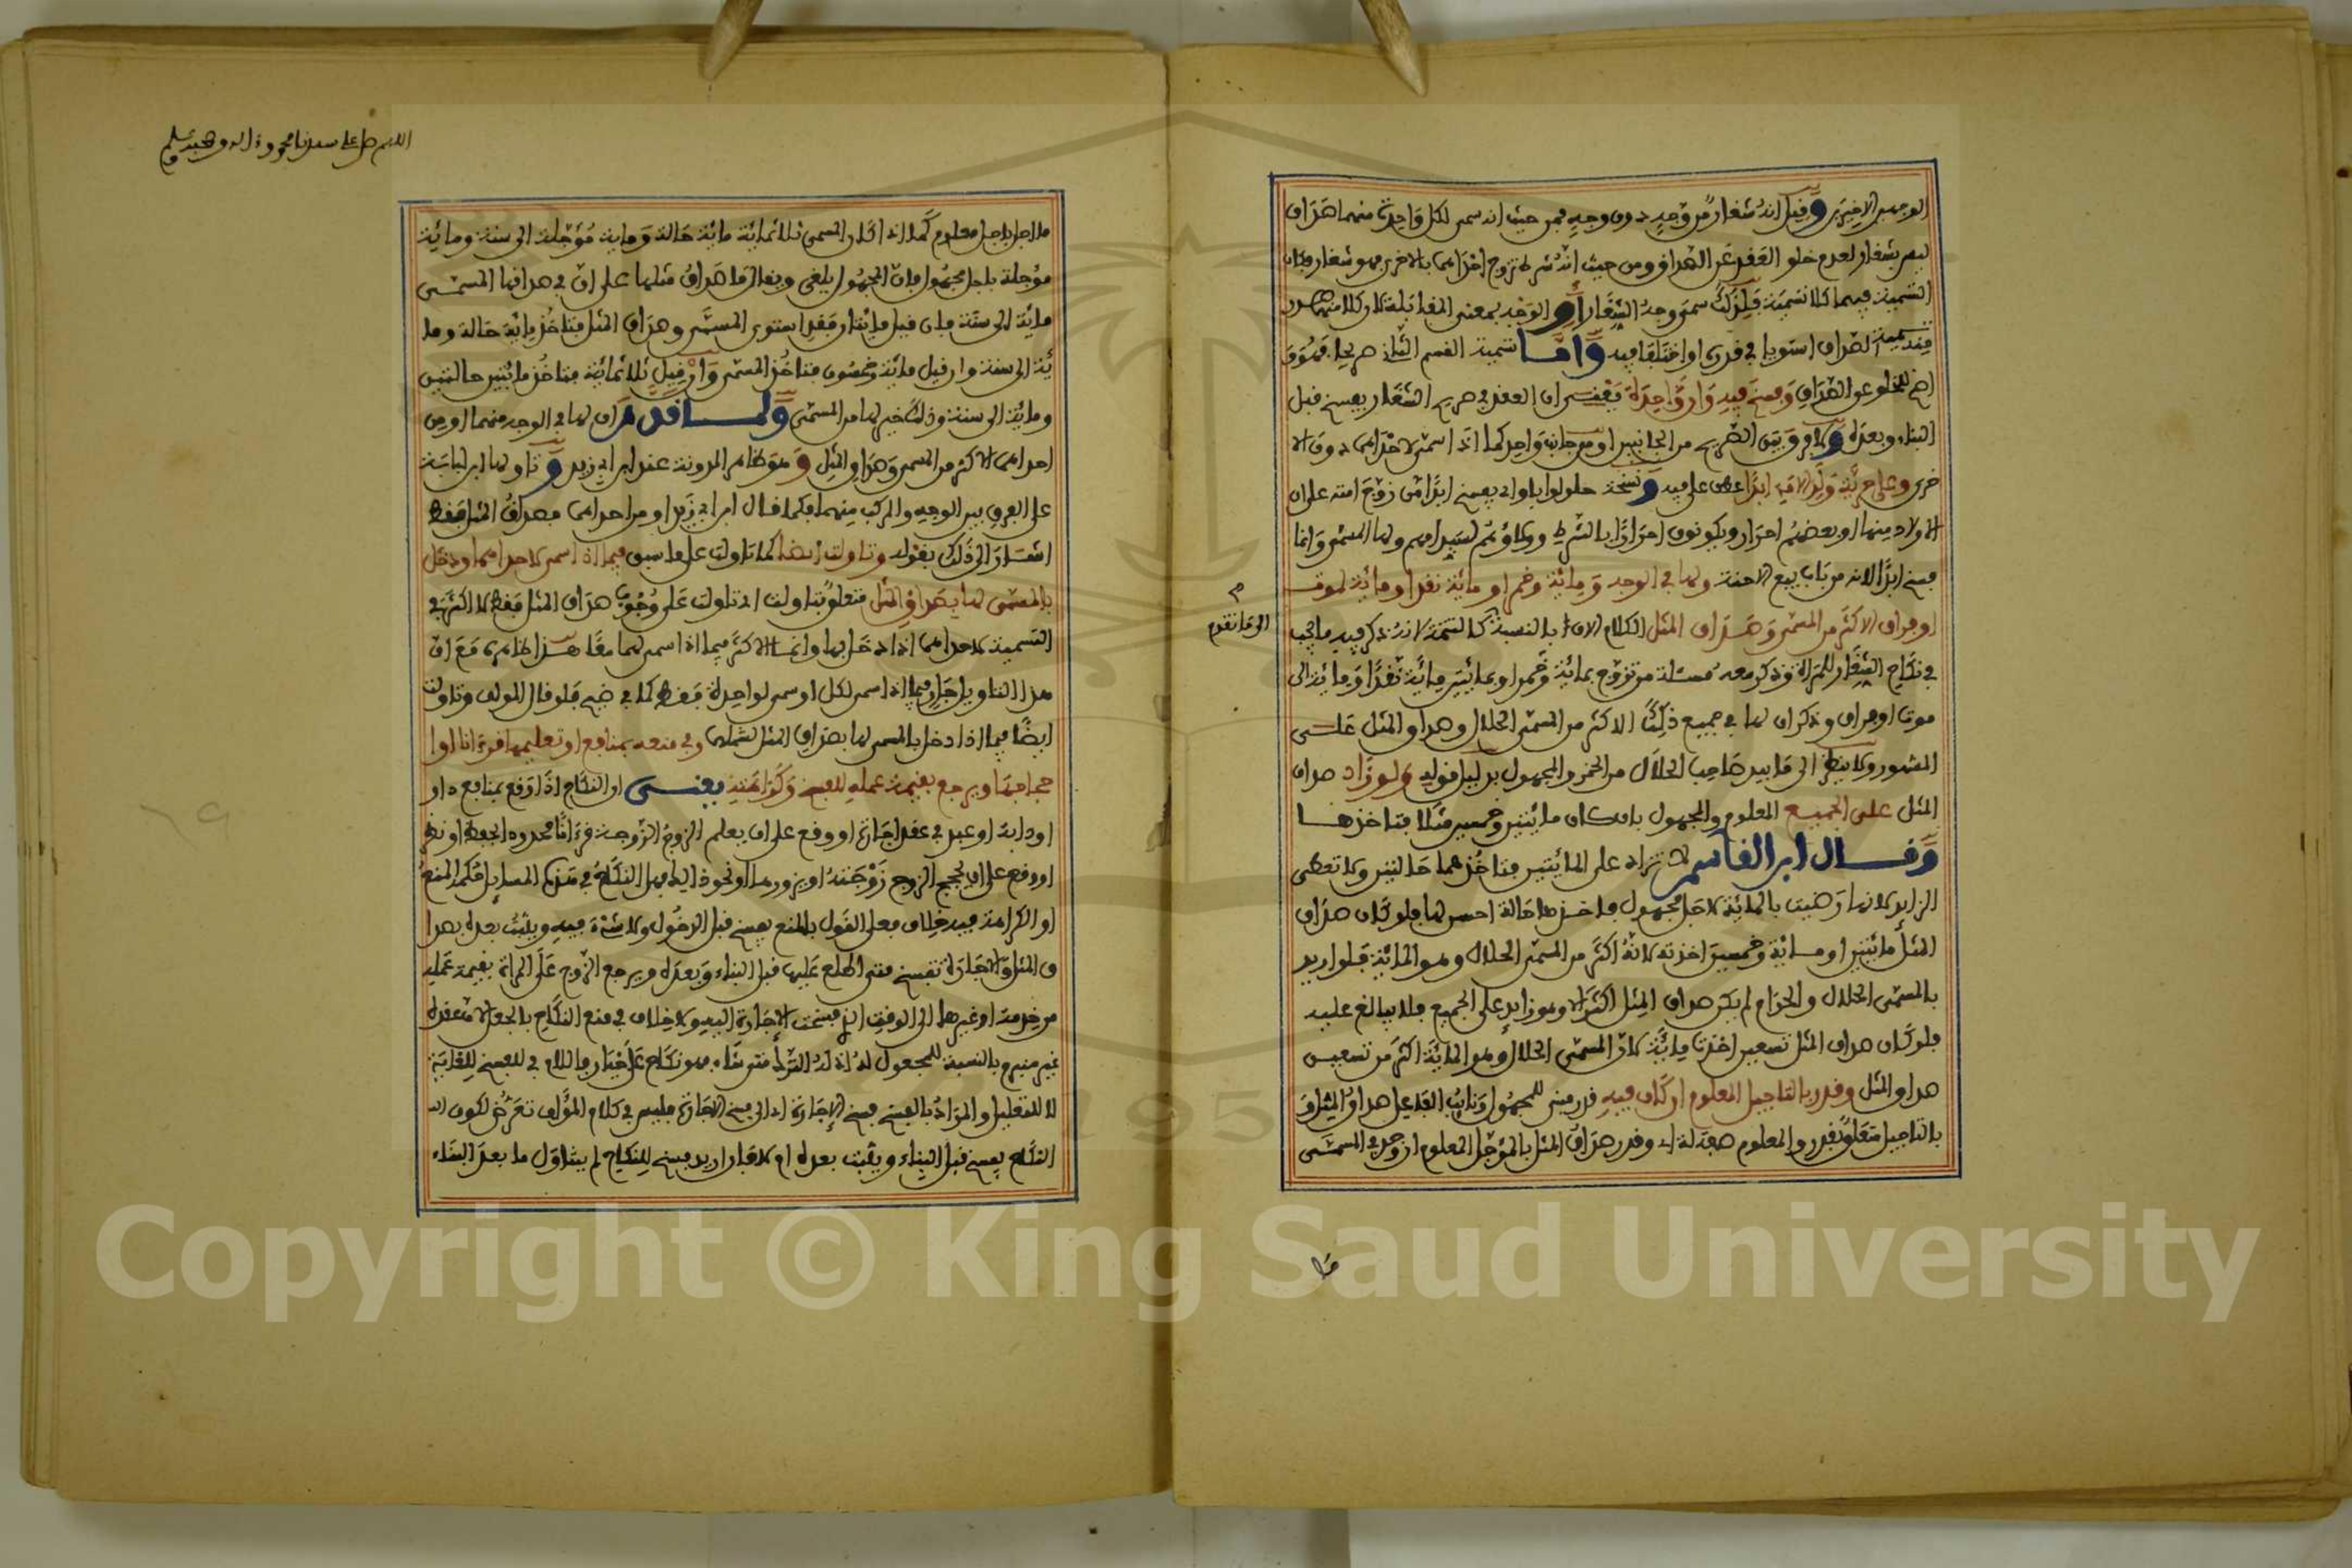 الوجهين الاخيرين وقيل انه شغار من وجه دون وجه فمن حيث انه سمى لكل واحدة منهما صداق
ليس بشغار لعدم خلو العقد عن الصداق ومن حيث انه شرط تزوج احداهما بالاخرى فهو شغار فكان
التسمية فيهما كلا تسمية فلذلك سمى وجه الشغار او الوجه بمعنى المقابلة لان كلا منهما
تسمية الصداق استويا في قدره او اختلفا فيه واما تسمية القسم الثاني صريحا
للخلو عن الصداق وفسخ فيه وان في واحدة يعني ان العقد في صريح الشغار يفسخ قبل
البناء وبعده ولا فرق بين الصريح من الجانبين او من جانب واحد كما اذا سمى لاحداهما دون الا
خرى وعلى حرية ولد الامة ابدا عطف على فيه ونسخة حلولو باو اي يفسخ ابدا من زوج امته على ان
الاولاد منها او بعضهم احرار ويكونون احرارا بالشرط وولاؤهم لسيد امهم ولها المسمى وانما
فسخ ابدا لانه من باب بيع الاجنة ولها في الوجه ومائة وخمر او مائة نقدا ومائة لموت
او فراق الاكثر من المسمى وصداق المثل الكلام الان بالنسبة كالتتمة لانه ذكر فيه ما يجب
الى ما تقدم
في نكاح الشغار للمراة وذكر معه مسئلة من تزوج بمائة وخمر او بمائتين مائة نقدا ومائة الى
موت او فراق وذكر ان لها في جميع ذلك الاكثر من المسمى الحلال وصداق المثل على
المشهور ولا ينظر الى ما بيد صاحب الحلال من الخمر والمجهول بدليل قوله ولو زاد صداق
المثل على الجميع المعلوم والمجهول بان كان مائتين وخمسين مثلا فتاخذها
وقال ابن القاسم لا تزاد على المائتين فتاخذهما حالتين ولا تعطى
الزايد لانها رضيت بالمائة لاجل مجهول فاخذها حالة احسن لها فلو كان صداق
المثل مائتين او مائة وخمسين اخذته لانه اكثر من المسمى الحلال وهو المائة فلو اريد
بالمسمى الحلال والحرام لم يكن صداق المثل اكثر الا وهو زايد على الجميع فلا يبالغ عليه
فلو كان صداق المثل تسعين اخذت مائة لان المسمى الحلال وهو المائة اكثر من تسعين
صداق المثل وقدر بالتاجيل المعلوم ان كان فيه قدر مبني للمجهول ونائب الفاعل صداق المثل
بالتاجيل متعلق بقدر والمعلوم صفة له اي وقدر صداق المثل بالمؤجل المعلوم ان وجد في المسمى
اللهم صل على سيدنا محمد واله وصحبه وسلم
مؤجلا باجل معلوم كما اذا كان المسمى ثلاثمائة مائة حالة ومائة مؤجلة الى سنة ومائة
مؤجلة باجل مجهول فان المجهول يلغى ويقال ما صداق مثلها على ان في صداقها المسمى
مائة الى سنة فان قيل مائتان فقد استوى المسمى وصداق المثل فتاخذ مائة حالة وما
ئة الى سنة وان قيل مائة وخمسون فتاخذ المسمى وان قيل ثلاثمائة فتاخذ مائتين حالتين
ومائة الى سنة وذلك خير لها من المسمى ولما قدم ان لها في الوجه منهما او من
احداهما الاكثر من المسمى وصداق المثل وهو ظاهر المدونة عند ابن ابي زيد وتاولها ابن لبابة
على الفرق بين الوجه والمركب منهما فكما قال ابن ابي زيد او من احداهما فصداق المثل فقط
اشار الى ذلك بقوله وتاولت ايضا كما تاولت على ما سبق فيما اذا سمى لاحداهما ودخل
بالمسمى لها بصداق المثل متعلق بتاولت اي تاولت على وجوب صداق المثل فقط لا اكثر في
التسمية لاحداهما اذا دخل بها وانما الاكثر فيما اذا سمى لهما معا هذا ظاهره مع ان
هذا التاويل جار فيما اذا سمى لكل او سمى لواحدة فقط كما في ضيح فلو قال المولف وتاولت
ايضا فيما اذا دخل بالمسمى لها بصداق المثل لشملهما وفي منعه بمنافع او تعليمها قرءانا او ا
حجاجها ويرجع بقيمة عمله للفسخ وكراهته يعني ان النكاح اذا وقع بمنافع دار
او دابة او عبد في عقد اجارة او وقع على ان يعلم الزوج الزوجة قرءانا محدودا بحفظ او نظر
او وقع على ان يحجج الزوج زوجته او يزورها او نحو ذلك فهل النكاح في هذه المسايل حكمه المنع
او الكراهة فيه خلاف فعلى القول بالمنع يفسخ قبل الدخول ولا شيء فيه ويثبت بعده بصدا
ق المثل والاجارة تفسخ متى اطلع عليها قبل البناء وبعده ويرجع الزوج على المراة بقيمة عمله
من خدمة او غيرها الى الوقت الذي فسخت الاجارة اليه ولا خلاف في منع النكاح بالجعل لان عقده
غير منبرم بالنسبة للمجعول له اذ له الترك متى شاء فهو نكاح على خيار واللام في للفسخ للغاية
لا للتعليل والمراد بالفسخ فسخ الاجارة اي الى فسخ الاجارة فليس في كلام المؤلف تعرض لكون
النكاح يفسخ قبل البناء ويثبت بعده ام لا فان اريد فسخ للنكاح لم يتناول ما بعد البناء